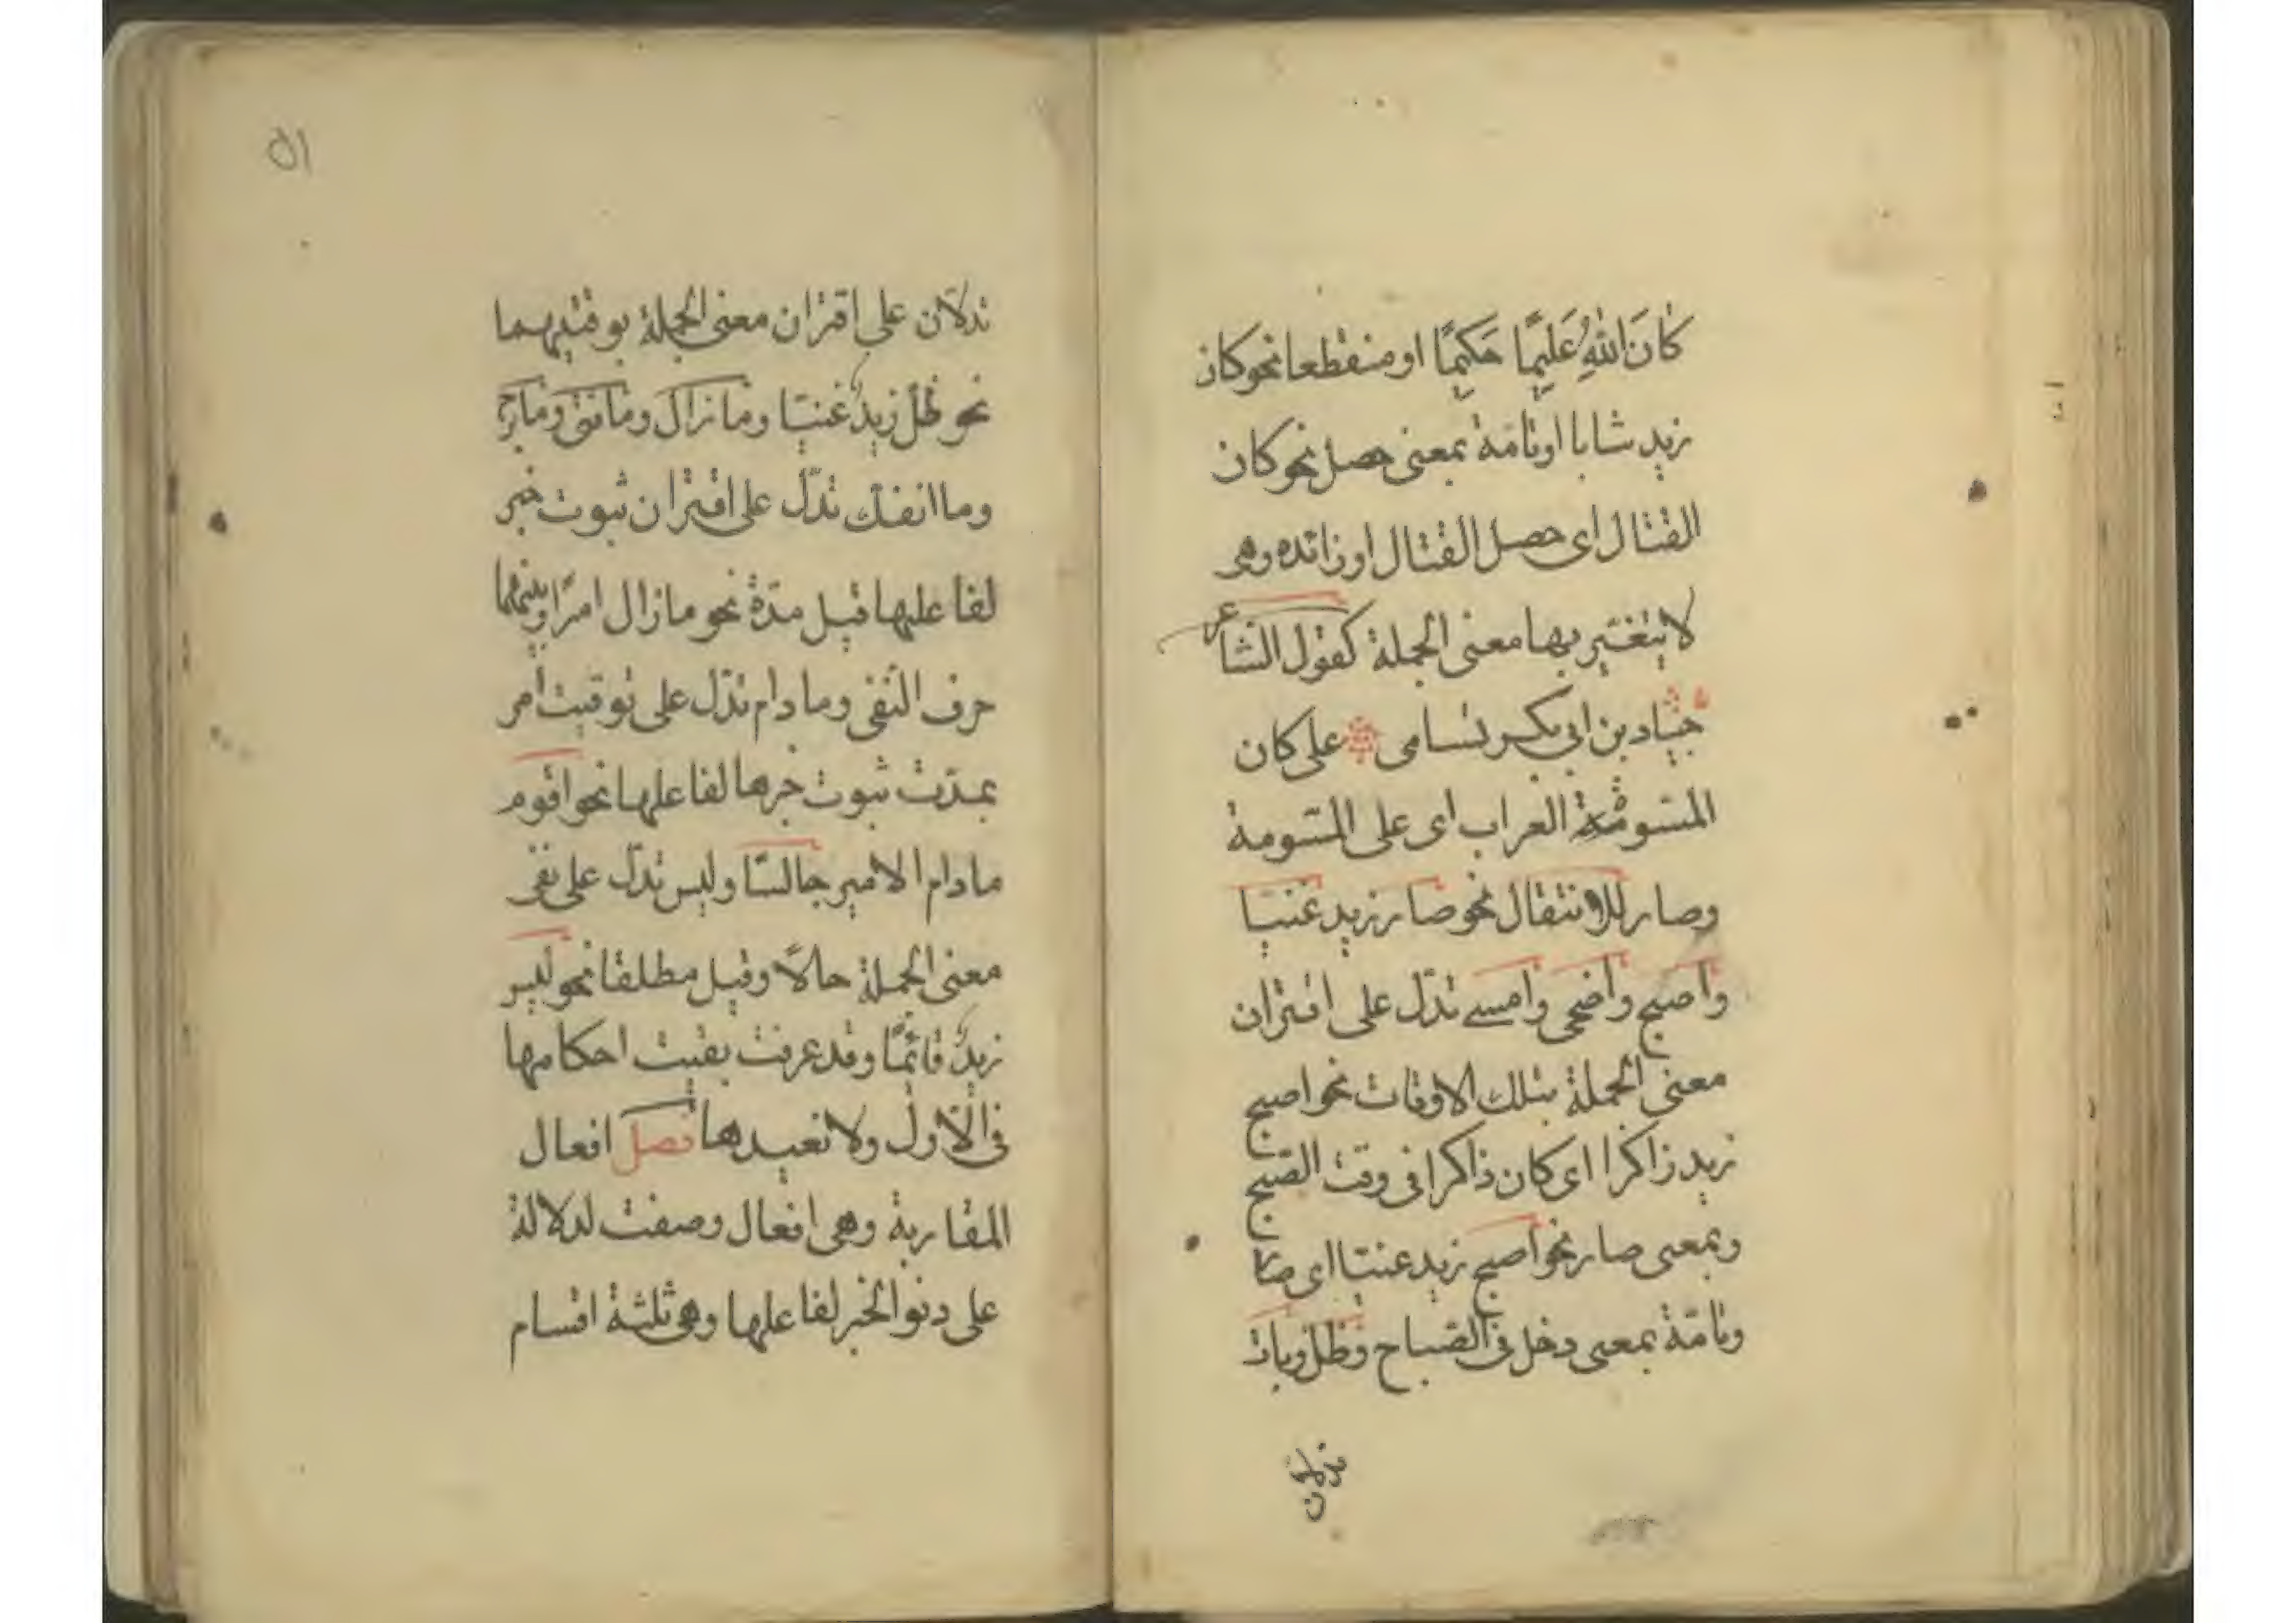 كَانَ اللّٰهُ عَلَيمًا حَكيمًا او منقطعا نحو كان
زيد شابا او تامة بمعنى حصل نحو كان
القتال اى حصل القتال او زائده وهى
لا يتغير بها معنى الجملة كقول الشاعر
جياد بن ابى بكر تسامى على كان
المسومة العراب اى على المسومة
وصار للانتقال نحو صار زيد غنيا
وأصبح وأضحى وأمسے تدلّ على اقتران
معنى الجملة بتلك الاوقات نحو اصبح
زيد زاكرا اى كان ذاكرا فى وقت الصبح
وبمعنى صار نحو اصبح زيد غنيا اى صار
وتامّة بمعنى دخل فى الصباح وظل وبات
تدلان
٥١
تدلّان على اقتران معنى الجملة بوقتيهما
نحو ظلّ زيدٌ غنيّا وما زال وما فتئ وما برح
وما انفك تدلّ على اقتران ثبوت خبر
لفاعليها قبل مدّة نحو ما زال امرًا وبينهما
حرف النّفى وما دام تدّل على توقيت أمر
بمدّت ثبوت خبرها لفاعلها نحو اقوم
ما دام الامير جالسًا وليس تدلّ على نفى
معنى الجملة حالًا وقيل مطلقا نحو ليس
زيدٌ قائمًا وقد عرفت بقيت احكامها
فى الاول ولا نعيدها فصل افعال
المقاربة وهى افعال وصفت لدلالة
على دنو الخبر لفاعلها وهى ثلثة اقسام